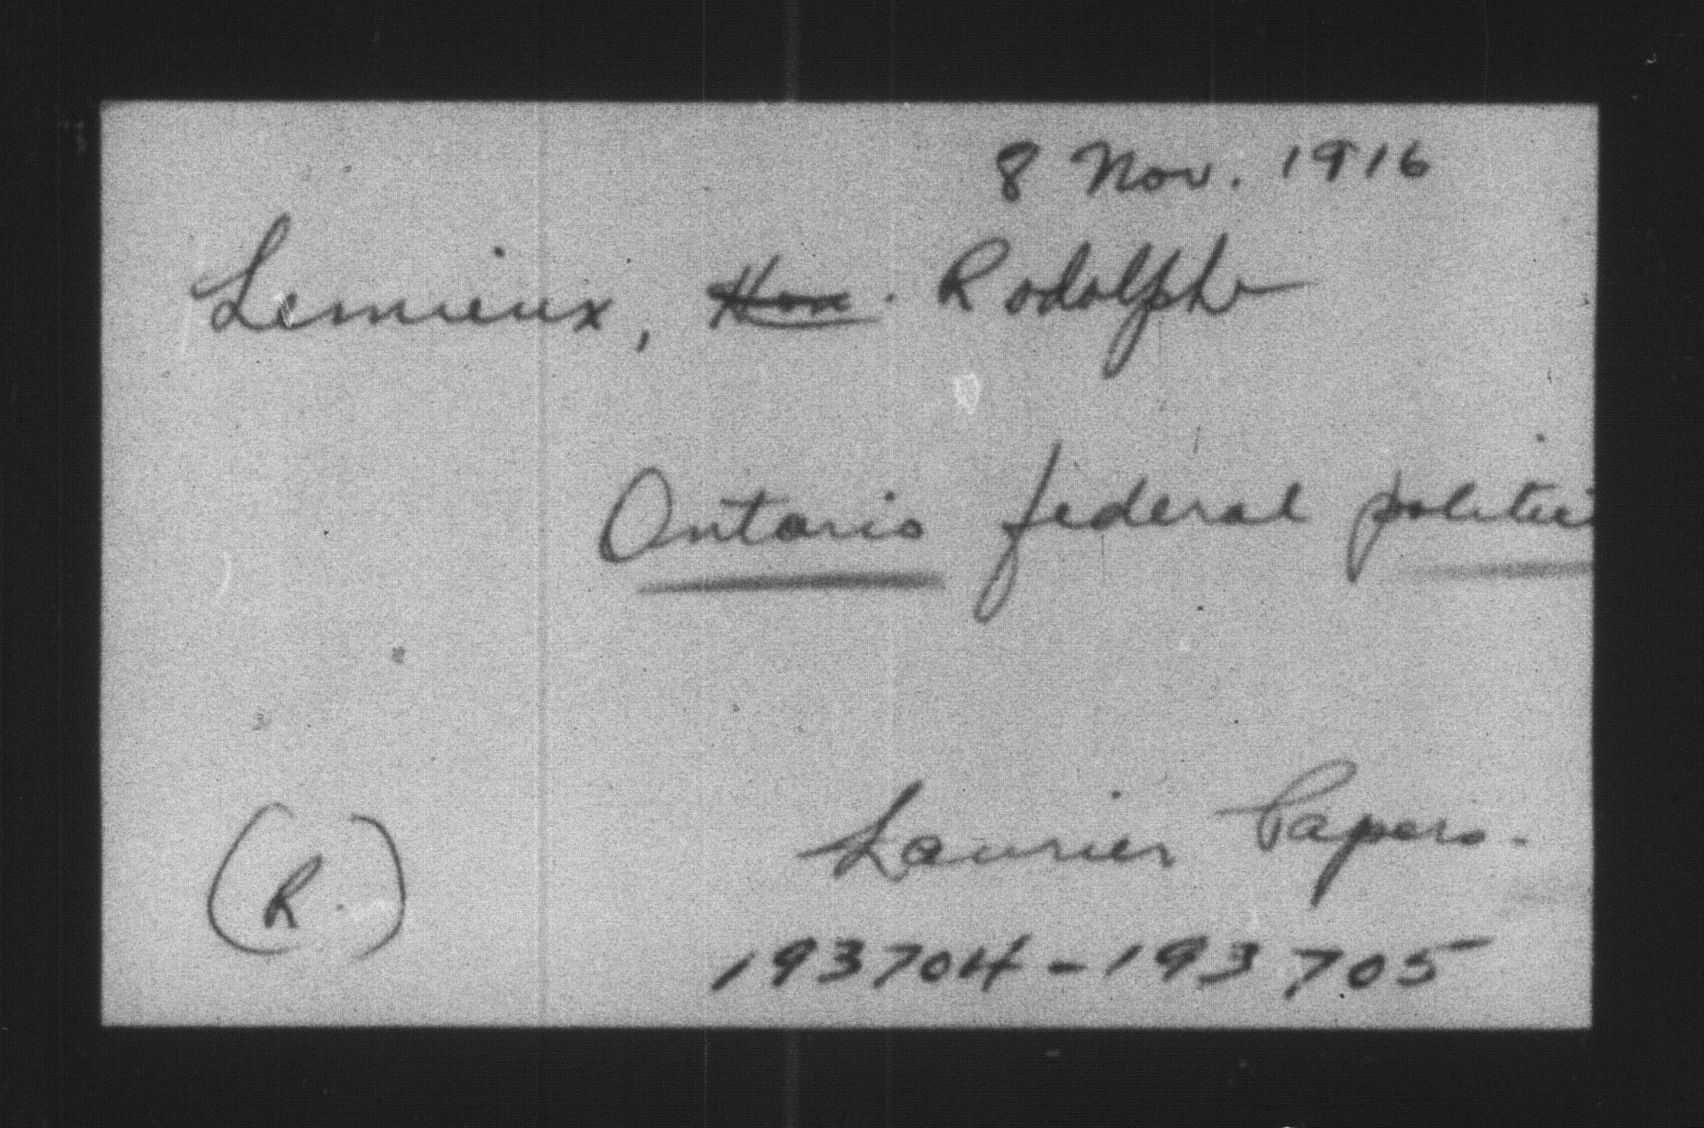 8 Nov. 1916
Lemieux, Hon. Rodolphe
Ontario federal politic
Laurier Papers.
(R.)
193704-193705